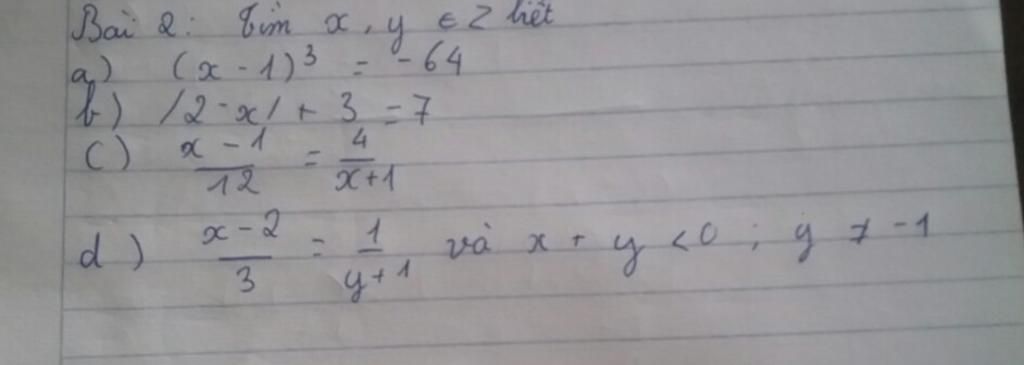 Bài 2: Tìm x, y ∈ Z biết
a) (x - 1)³ = -64
b) |2 - x| + 3 = 7
c) (x - 1)/12 = 4/(x+1)
d) (x - 2)/3 = 1/(y+1) và x + y < 0 ; y ≠ -1